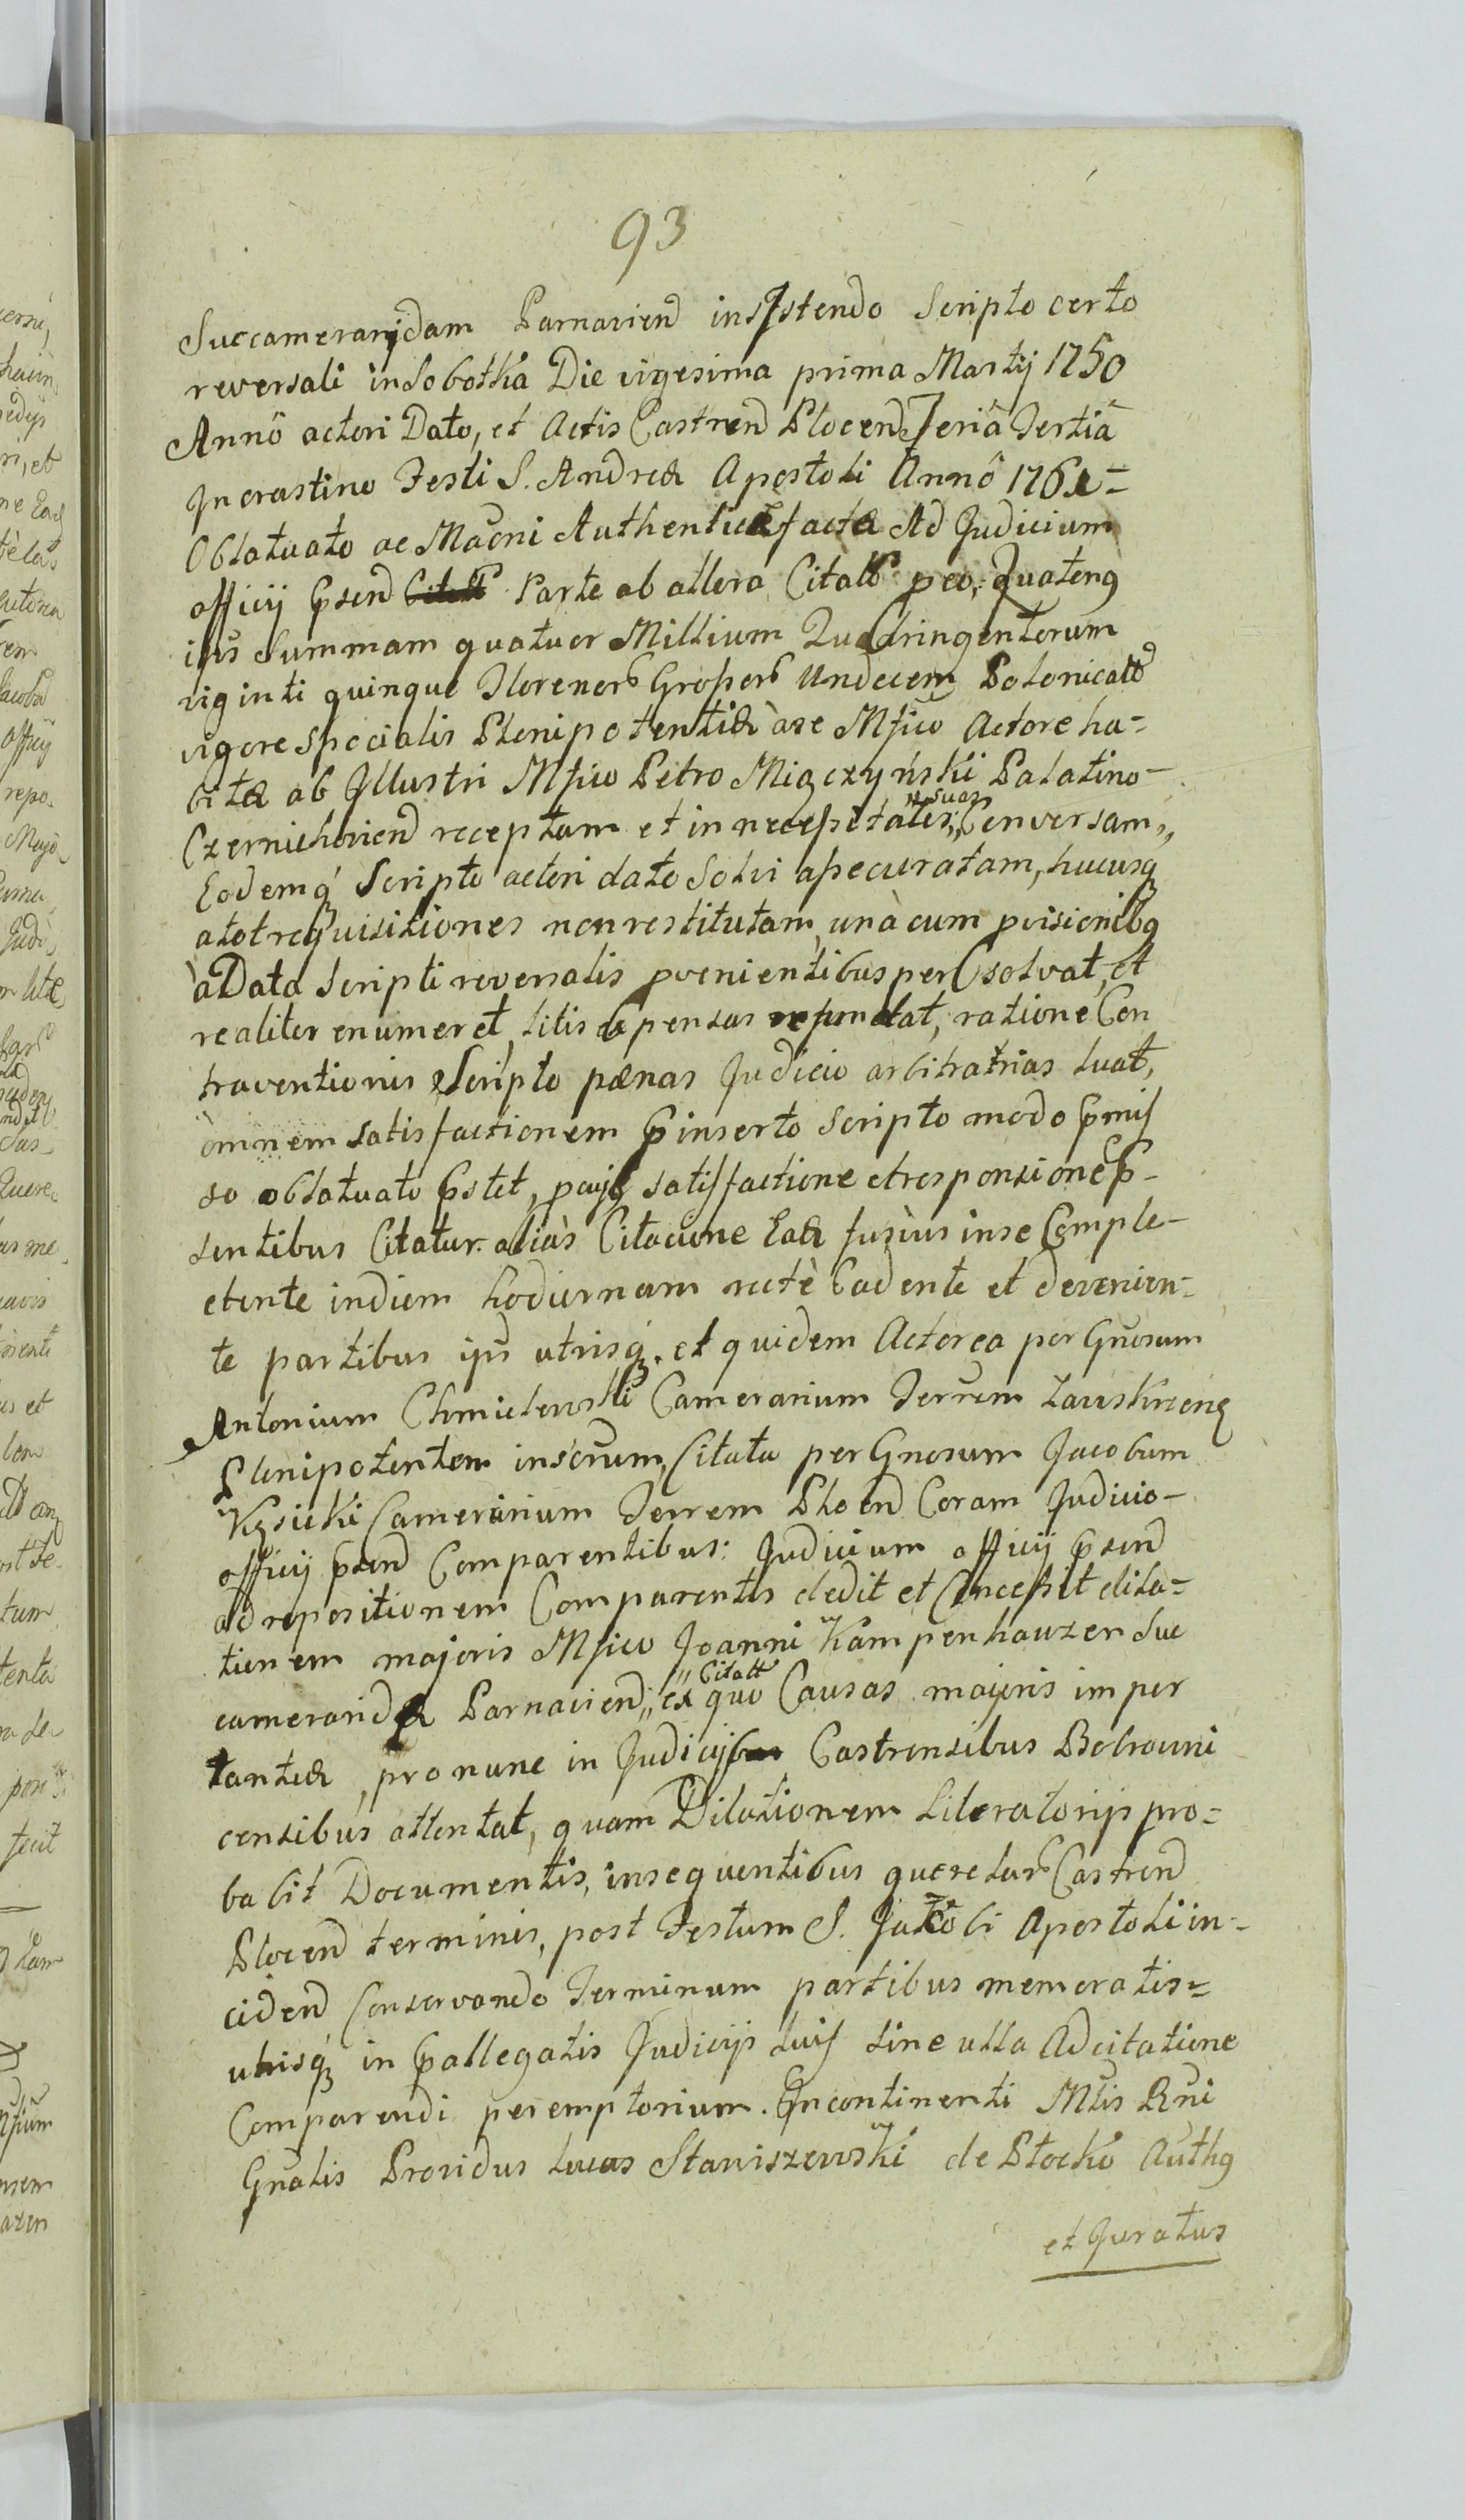 93
Succameraridam Parnavien̄d insistendo Scripto certo
reversali in Sobotka Die vigesima prima Martij 1750
Annô actori Dato, et Actis Castren̄d Plocen̄d Feriâ Tertiâ
In crastino Festi S. Andreæ Apostoli Annô 1761=
Oblatuato ac Magni Authenticæ facta Ad Judicium
officij p̄sen̄d Parte ab altera Citatt peo: Quatenq
ius Summam quatuor Millium Quadringentorum
viginti quinque Florenor Grossor Undecem Polonical
vigore specialis Plenipotentiæ à se Mfico Actore ha-
bitæ ab Illustri Mfico Petro Miączyński Palatino-
Czernichovien̄d receptam et in necessitates „suas„ Conversam„
Eodemq́ Scripto actori dato Solvi assecuratam, hucusq
a tot requisitiones non restitutam, unà cum pvisionibq
à Data Scripti reversalis pvenientibus persolvat, et
realiter enumeret, litis expensas rependat, ratione Con
traventionis Scripto pænas Judicio arbitratrias luat,
omnem satisfactionem p̄inserto Scripto modo p̄mis
so oblatuato p̄stet, p cujq satisfactione et responsione p̄-
sentibus Citatur. aliàs Citacione Eadē fusius in se Comple-
ctente in diem hodiernam rectè Cadente et devenien-
te partibus ip̄s utrisq́. et quidem Actorea per Gnosum
Antonium Chmielewski Camerarium Terrem Zawskrzenq
Plenipotentem insērum, Citata per Gnosum Jacobum
Kęsicki Camerarium Terrem Plocen̄d Coram Judicio-
officij p̄sen̄d Comparentibus: Judicium officij p̄sen̄d
ad repositionem Comparentis dedit et Concessit dila=
tionem majoris Mfico Joanni Kampenhauzen Suc
cameraridæ Parnavien̄d „Citatt„ ex quo Causas majoris impor
tantiæ, pro nunc in Judicijs Castrensibus Bobrowni
censibus attentat, quam Dilationem Literatorijs pro=
babit Documentis, insequentibus querelar Castren̄d
Plocen̄d terminis, post Festum S. Jacobi Apostoli in-
ciden̄d Conservando Terminum partibus memoratis=
utrisq́ in p̄allegatis Judicijs suis sine ulla Adcitatione
Comparendi peremptorium. Incontinenti Mtis Rni
Gnalis Providus Lucas Staniszewski de Płocko Authq
et Juratus